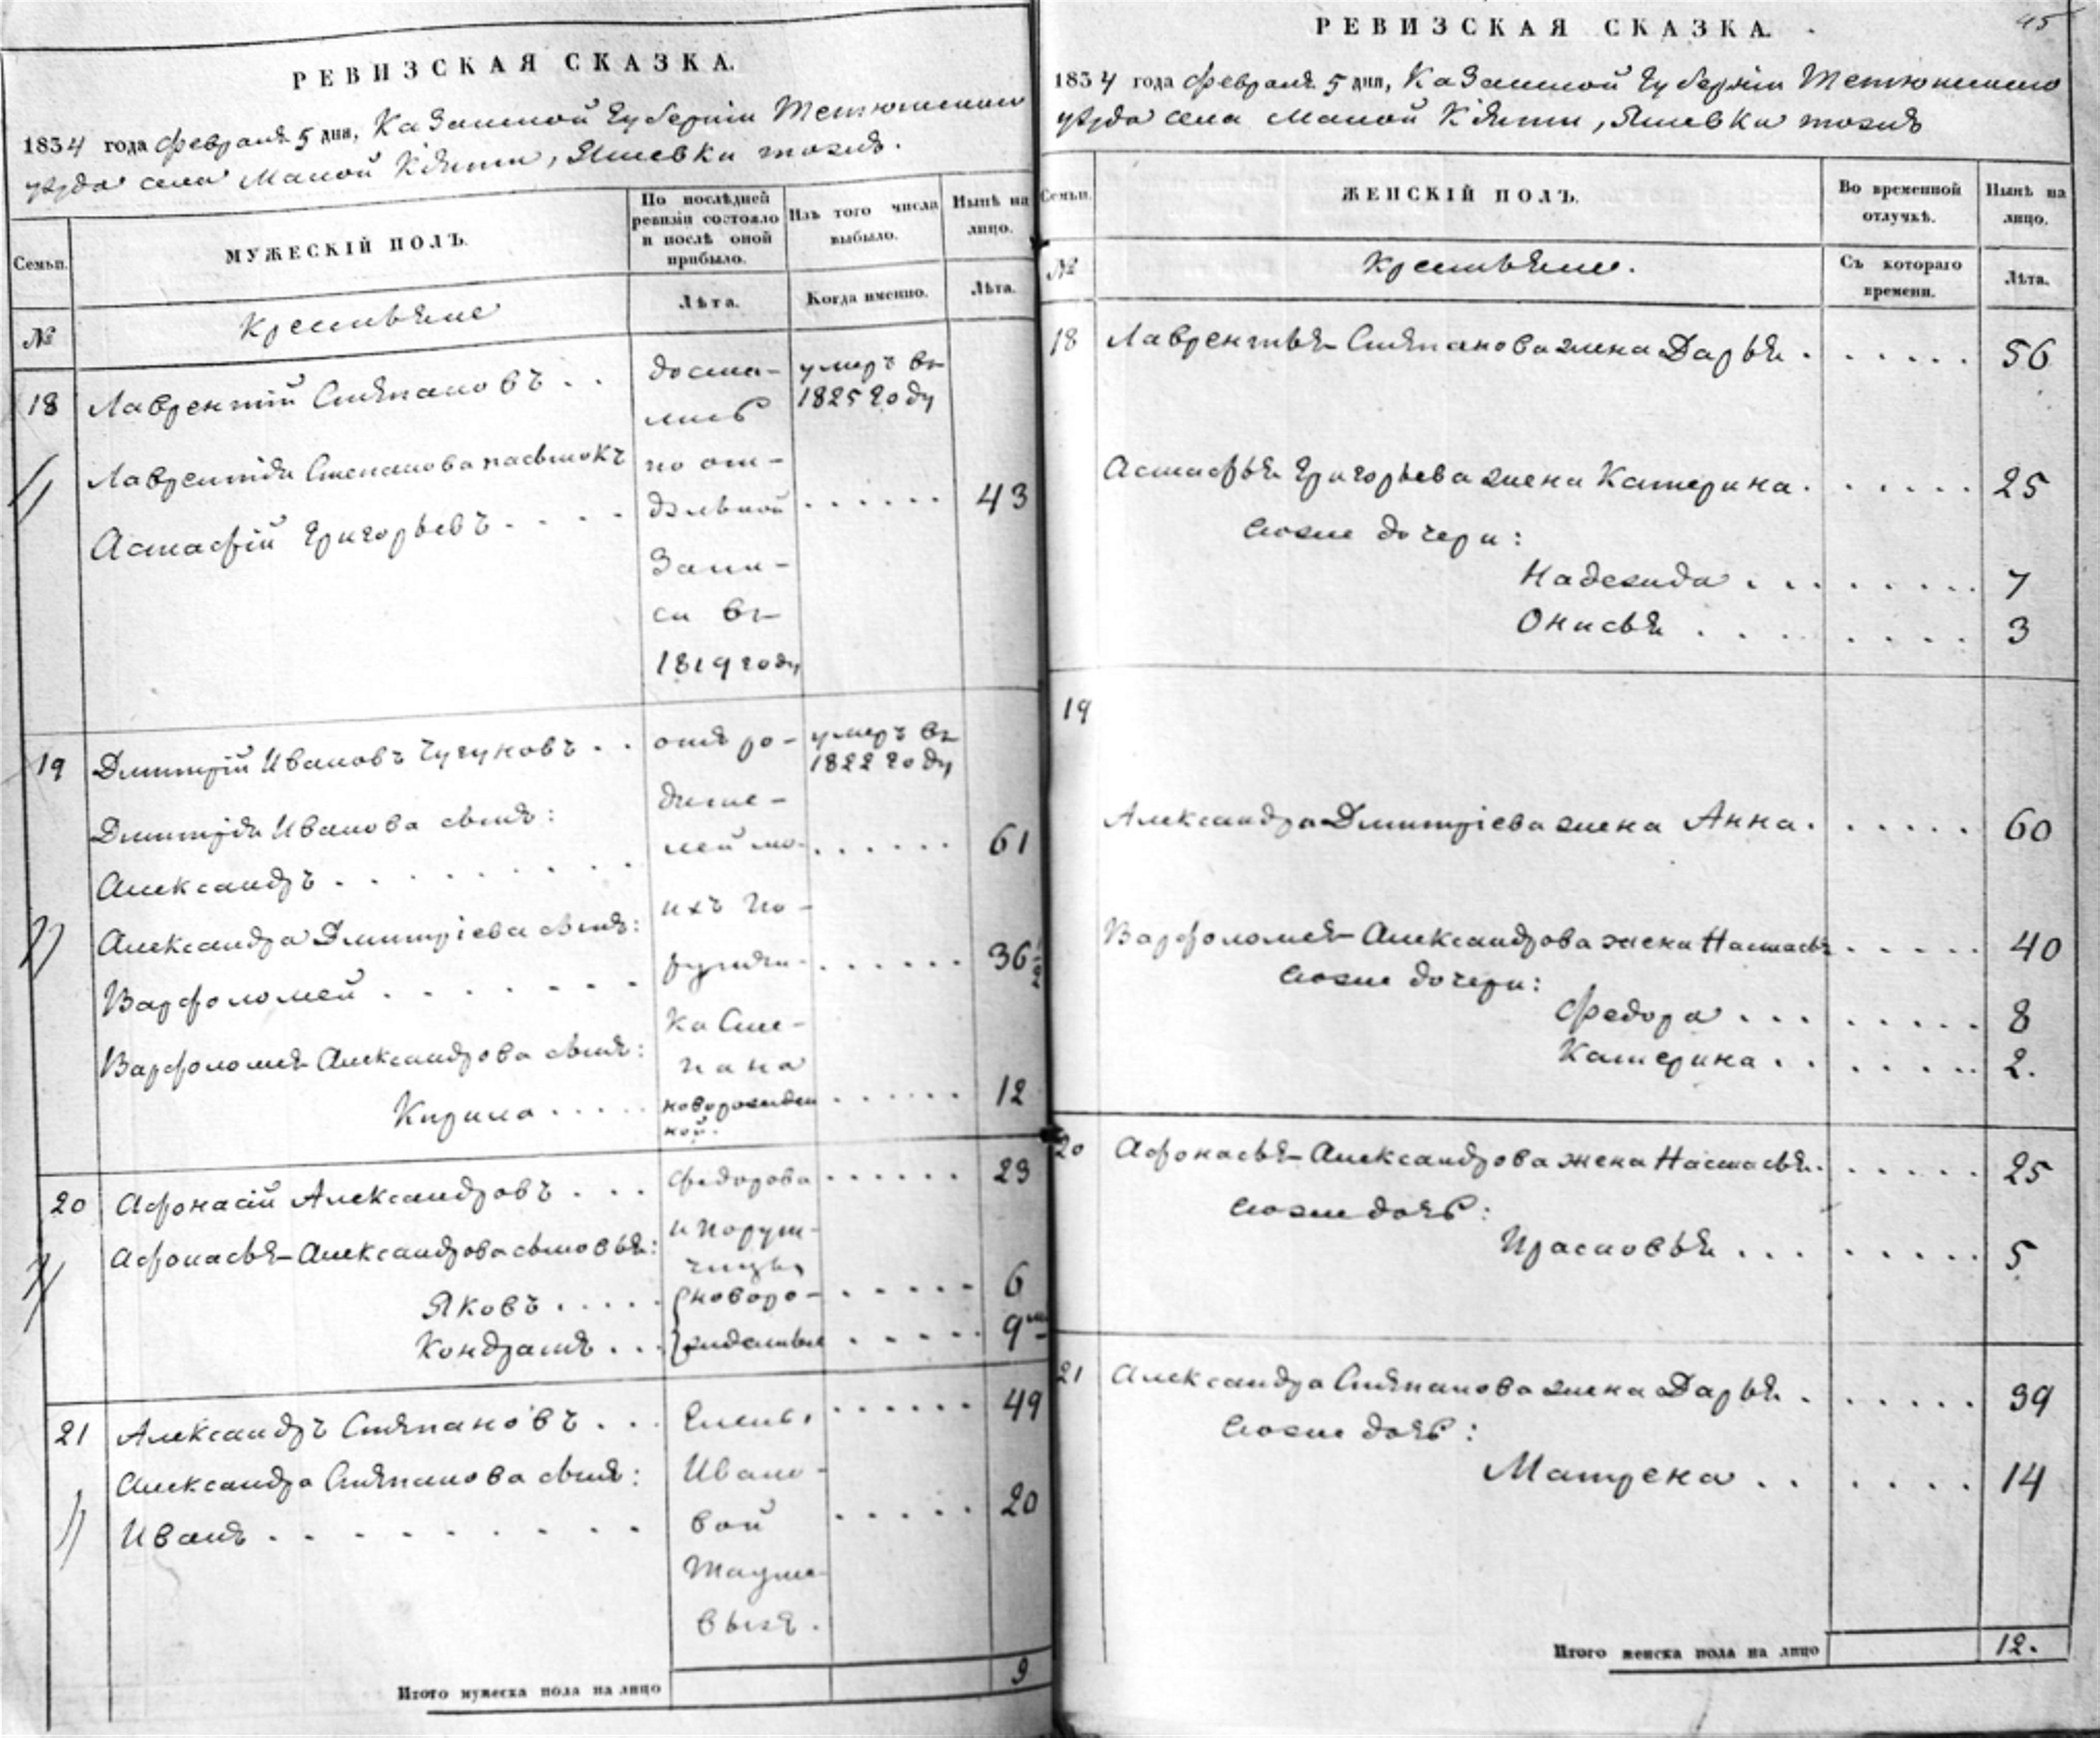 РЕВИЗСКАЯ СКАЗКА.
1834 года февраля 5 дня, Казанской Губернии Тетюшского
уѣзда села Малой Кляти, Яшевки тожъ.
Семьи.
МУЖЕСКІЙ ПОЛЪ.
По послѣдней ревизіи состояло и послѣ оной прибыло.
Изъ того числа выбыло.
Нынѣ на лицо.
№
Крестьяне
Лѣта.
Когда именно.
Лѣта.
18 Лаврентій Степановъ . . доста- умеръ въ
лись 1825 году
Лаврентія Степанова пасынокъ по от-
Астафій Григорьевъ . . . . дѣльной . . . . . . 43
запи-
си въ
1819 году
19 Дмитрій Ивановъ Чугуновъ . . отъ ро- умеръ въ
1822 году
Дмитрія Иванова сынъ: дите-
Александръ . . . . . . . . лей мо- . . . . . . 61
ихъ По-
Александра Дмитріева сынъ:
Варфоломей . . . . . . . ручи- . . . . . . 36 1/2
Варфоломея Александрова сынъ: ка Сте-
пана
Кирила . . . . . новорожден . . . . . . 12
ной.
20 Афонасій Александровъ . . . Федорова . . . . . . 23
Афонасья Александрова сыновья: и Поруч-
чицы
Яковъ . . . . . новоро- . . . . . 6
Кондратъ . . . жденные . . . . . 9 м
21 Александръ Степановъ . . . Елены . . . . . . 49
Александра Степанова сынъ: Ивано-
Иванъ . . . . . . . . . вой . . . . . 20
выхъ.
Итого мужеска пола на лицо 9
45
РЕВИЗСКАЯ СКАЗКА.
1834 года февраля 5 дня, Казанской Губерніи Тетюшского
уѣзда села Малой Кляти, Яшевки тожъ
Семьи.
ЖЕНСКІЙ ПОЛЪ.
Во временной отлучкѣ.
Нынѣ на лицо.
№
Крестьяне.
Съ котораго времени.
Лѣта.
18 Лаврентья Степанова жена Дарья . . . . . . 56
Астафья Григорьева жена Катерина . . . . . . 25
Ихже дочери:
Надежда . . . . . . . . 7
Онисья . . . . . . . . 3
19
Александра Дмитріева жена Анна . . . . . . 60
Варфоломея Александрова жена Настасья . . . . . 40
Ихже дочери:
Федора . . . . . . . . 8
Катерина . . . . . . . 2.
20 Афонасья Александрова жена Настасья . . . . . . 25
Ихже дочь:
Прасковья . . . . . . . . 5
21 Александра Степанова жена Дарья . . . . . . 39
Ихже дочь:
Матрена . . . . . . 14
Итого женска пола на лицо 12.